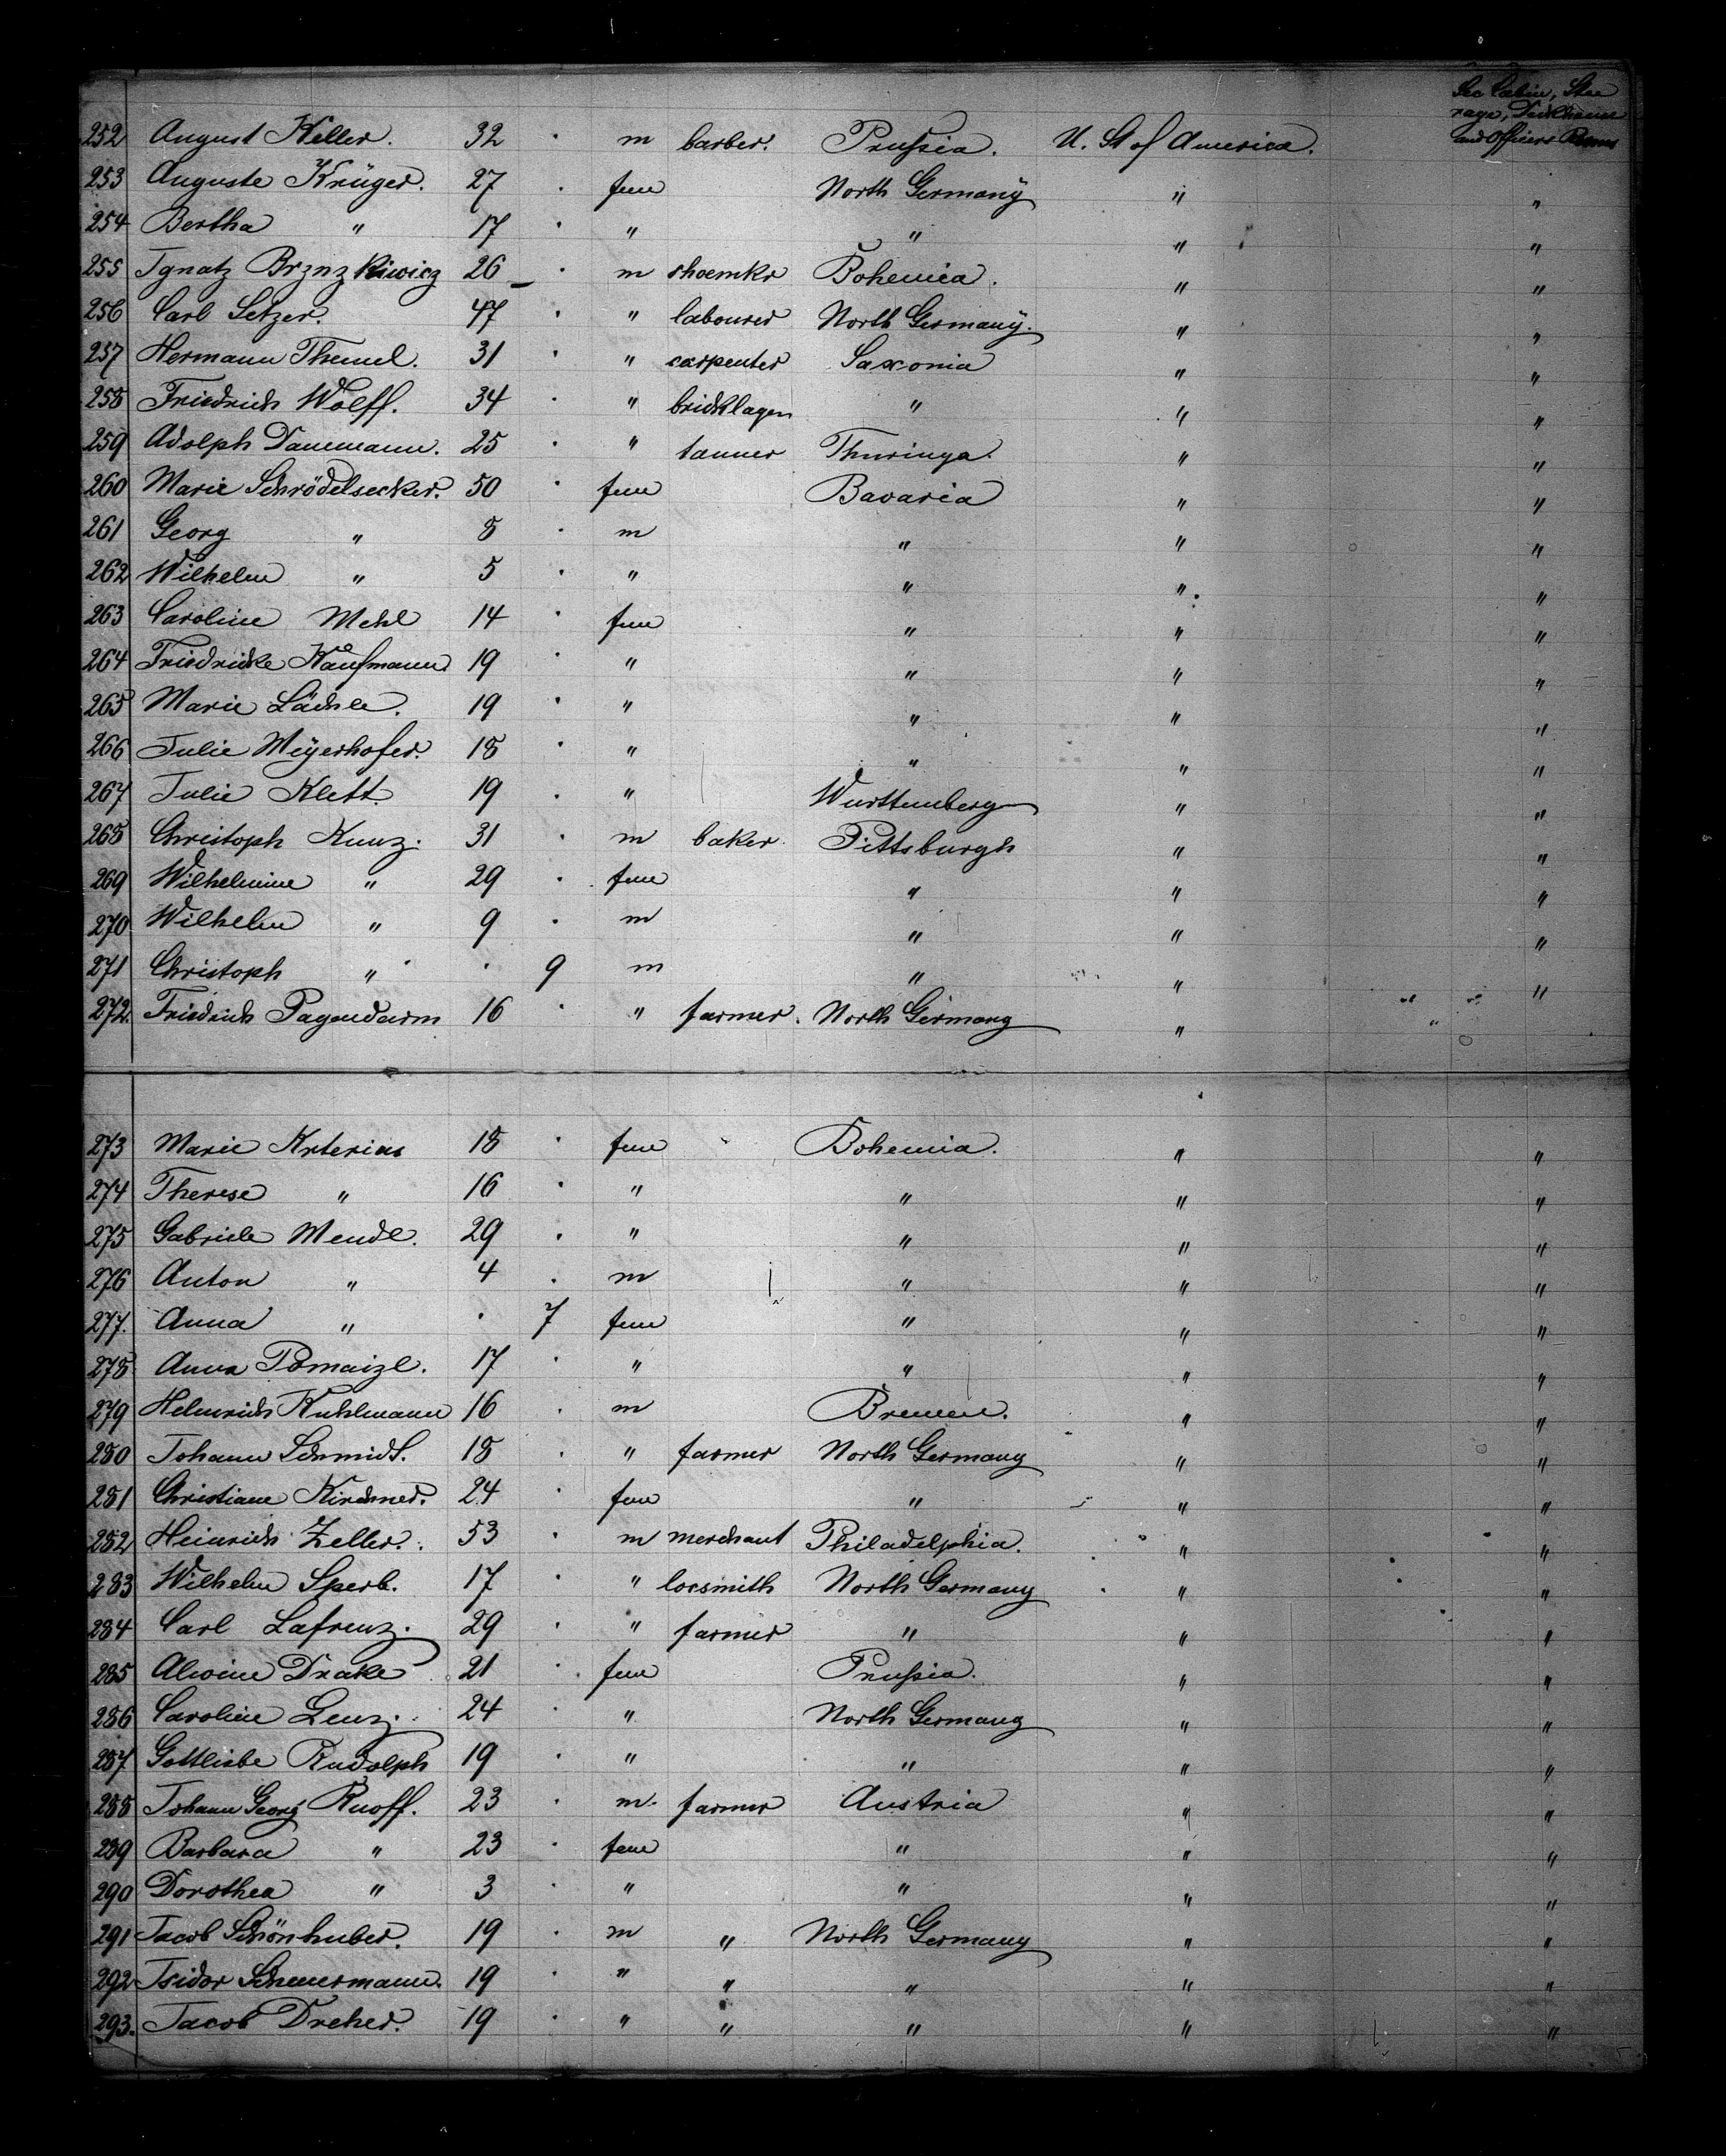 Sec Cabin, Stee
rage, Deckhouse
and Officers Rooms
252 August Keller. 32 · m barber. Prussia. U. St of America.
253 Auguste Krüger. 27 · fem North Germany " "
254 Bertha " 17 · " " " "
255 Ignatz Brznzkiwicz 26 · m shoemkr Bohemia. " "
256 Carl Setzer. 47 · " labourer North Germany. " "
257 Hermann Themel. 31 · " carpenter Saxonia " "
258 Friedrich Wolff. 34 · " bricklayer " " "
259 Adolph Dammann. 25 · " tanner Thuringa. " "
260 Marie Schrödelsecker. 50 · fem Bavaria " "
261 Georg " 8 · m " " "
262 Wilhelm " 5 · " " " "
263 Caroline Mehl 14 · fem " " "
264 Friedricke Kaufmann 19 · " " " "
265 Marie Lächle. 19 · " " " "
266 Julie Meyerhofer. 18 · " " " "
267 Julie Klett. 19 · " Wurttemberg " "
268 Christoph Kunz. 31 · m baker. Pittsburgh " "
269 Wilhelmine " 29 · fem " " "
270 Wilhelm " 9 · m " " "
271 Christoph " · 9 m " " "
272. Friedrich Pagendarm 16 · " farmer. North Germany "
273 Marie Krterius 18 · fem Bohemia. " "
274 Therese " 16 · " " " "
275 Gabriele Mendl. 29 · " " " "
276 Anton " 4 · m " " "
277. Anna " · 7 fem " " "
278 Anna Pomaizl. 17 · " " " "
279 Heinrich Kuhlmann 16 · m Bremen. " "
280 Johann Schmidt. 18 · " farmer North Germany " "
281 Christiane Kirchner. 24 · fem " " "
282 Heinrich Zeller. 53 · m merchant Philadelphia. " "
283 Wilhelm Sperb. 17 · " locsmith North Germany " "
284 Carl Lafrenz. 29 · " farmer " " "
285 Alwine Drake 21 · fem Prussia. " "
286 Caroline Lenz. 24 · " North Germany " "
287 Gottliebe Rudolph 19 · " " " "
288 Johann Georg Ruoff. 23 · m. farmer Austria " "
289 Barbara " 23 · fem " " "
290 Dorothea " 3 · " " " "
291 Jacob Schönhuber. 19 · m " North Germany " "
292 Isidor Scheuermann. 19 · " " " " "
293. Jacob Dreher. 19 · " " " " "